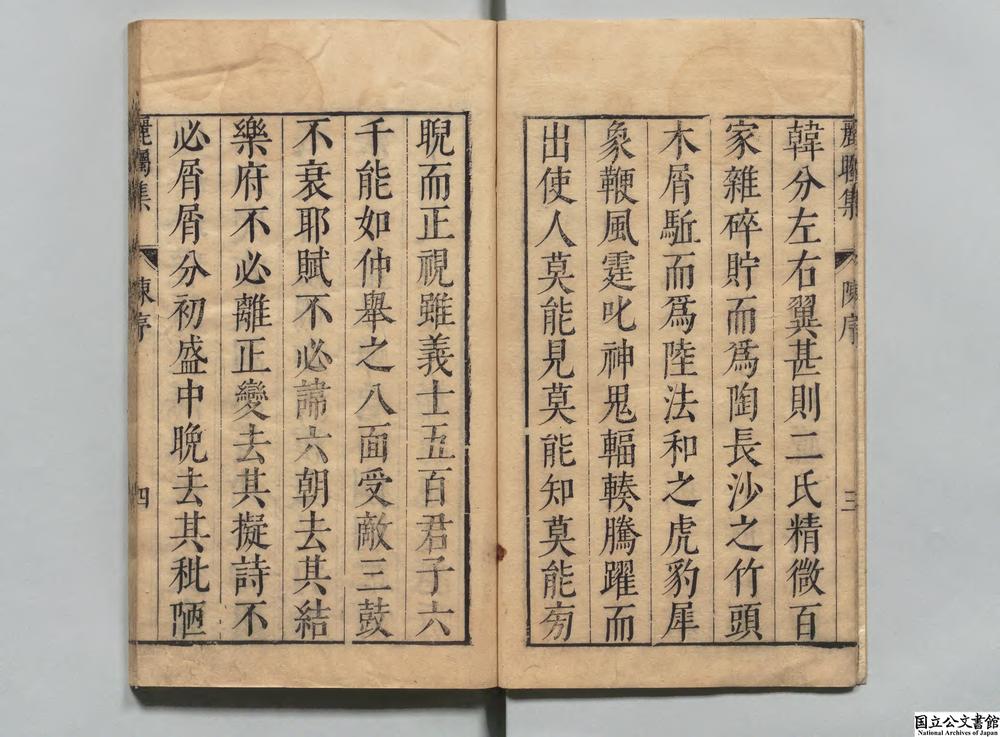 韓分左右翼甚則二氏精微百
家雜碎貯而爲陶長沙之竹頭
木屑駈而爲陸法和之虎豹犀
象鞭風霆叱神鬼輻輳騰躍而
出使人莫能見莫能知莫能旁
睨而正視雖義士五百君子六
千能如仲舉之八面受敵三鼓
不衰耶賦不必諦六朝去其結
樂府不必離正變去其擬詩不
必屑屑分初盛中晚去其秕陋
集 陳序 三
集 陳序 四
国立公文書館
National Archives of Japan